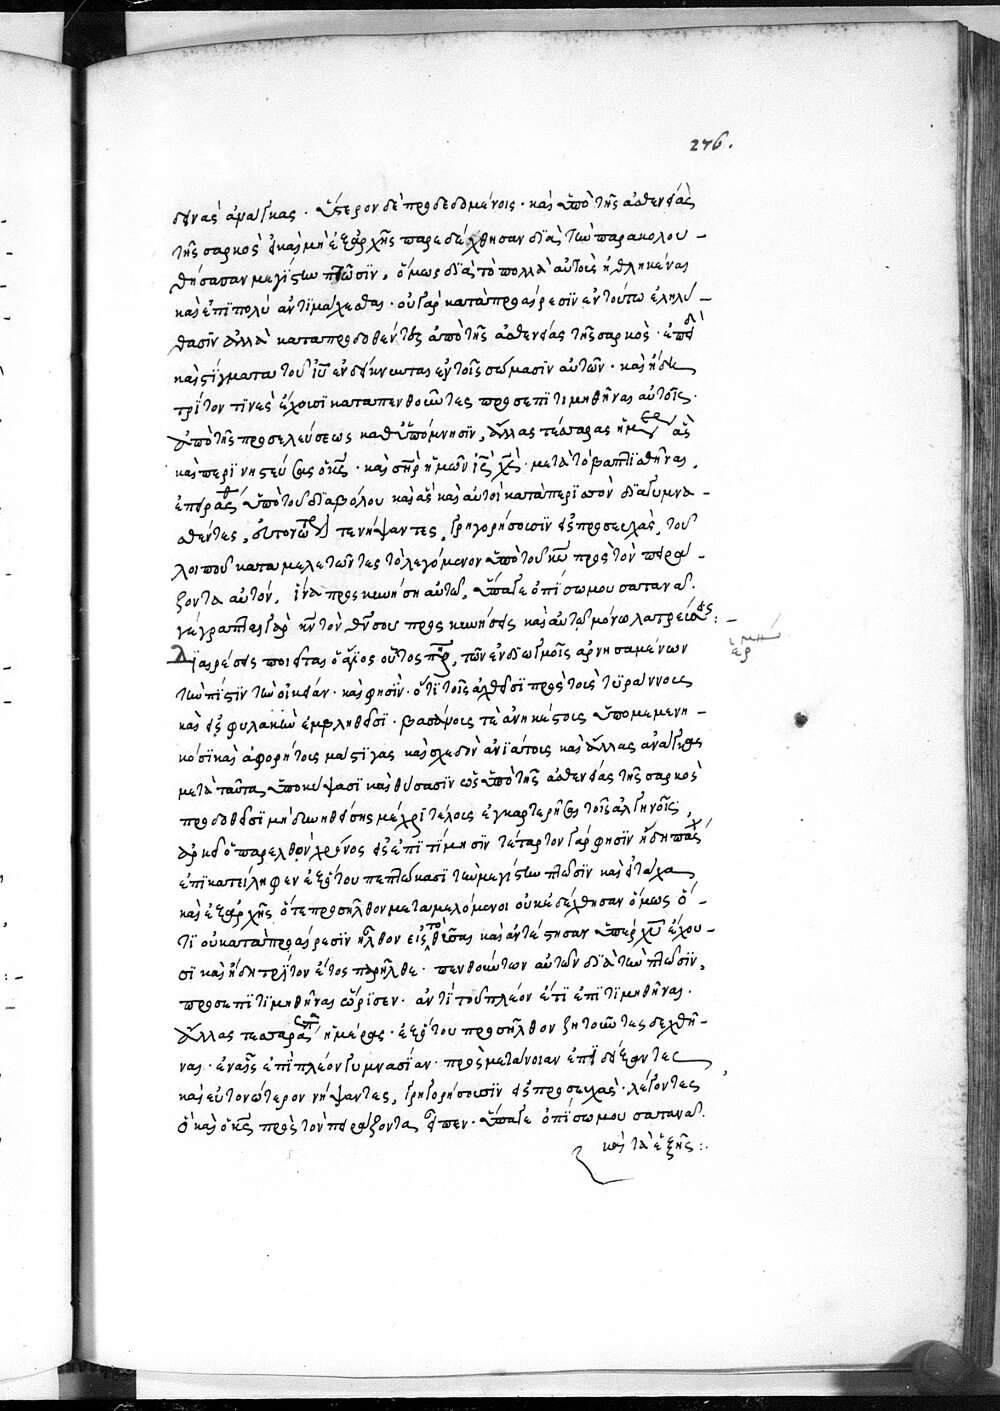 276.
δεινὰς ἀνάγκας. ὕστερον δὲ προδεδομένοις. καὶ ὑπὸ τῆς ἀσθενείας
τῆς σαρκὸς εἰ καὶ μὴ ἐξαρχῆς παρεδέχθησαν διὰ τὴν παρακολου-
θήσασαν μεγίστην πτῶσιν, ὅμως διὰ τὸ πολλὰ αὐτοὺς ἠθληκέναι
καὶ ἐπιπολὺ ἀντιμάχεσθαι. οὐ γὰρ κατὰ προαίρεσιν ἐν τούτω ἐληλύ-
θασιν ἀλλὰ καταπροδοθέντες ἀπὸ τῆς ἀσθενείας τῆς σαρκὸς. ἐπεὶ δὲ
καὶ στίγματα τοῦ ἰῦ ἐνδείκνυνται ἐν τοῖς σώμασιν αὐτῶν. καὶ ἤδη
τρίτον τινὲς ἔχουσι καταπενθοῦντες προσεπιτιμηθῆναι αὐτοῖς.
ἀπὸ τῆς προσελεύσεως καθ' ὑπόμνησιν, ἄλλας τεσσαράκοντα ἡμέρας ἃς
καίπερ νηστεύσας ὁ κς. καὶ σηρ ἡμῶν ις χς. μετὰ τὸ βαπτισθῆναι,
ἐπειράσθη ὑπὸ τοῦ διαβόλου καὶ ἃς καὶ αὐτοὶ κατὰ περισσὸν διαγυμνα-
σθέντες, εὐτονώτερόν τε νήψαντες, γρηγορήσουσιν εἰς προσευχὰς, τοῦ
λοιποῦ καταμελετῶντες τὸ λεγόμενον ὑπὸ τοῦ κυ πρὸς τὸν πειρά-
ζοντα αὐτόν, ἵνα προσκυνήση αὐτῶ, ὕπαγε ὀπίσω μου σατανᾶ.
γέγραπται γὰρ κν τὸν θν σου προσκυνήσεις καὶ αὐτῶ μόνω λατρεύσεις: –
Διαιρέσεις ποιεῖται ὁ ἅγιος οὗτος πηρ, τῶν ἐν διωγμοῖς ἀρνησαμένων
τὴν πίστιν τὴν οἰκείαν. καὶ φησὶν. ὅτι τοῖς ἀχθεῖσι πρὸς τοὺς τυράννους
καὶ εἰς φυλακὴν ἐμβληθεῖσι. βασάνους τὲ ἀνηκέστους ὑπομεμενη-
κόσι καὶ ἀφορήτους μάστιγας καὶ σχεδὸν ἀνιάτους καὶ ἄλλας ἀνάγκας
μετὰ ταῦτα ὑποκύψασι καὶ θύσασιν ὡς ὑπὸ τῆς ἀσθενείας τῆς σαρκὸς
προδοθεῖσι μὴ δυνηθείσης μέχρι τέλους ἐγκαρτερῆσαι τοῖς ἀλγηνοῖς,
ἀρκεῖ ὁ παρελθὼν χρόνος εἰς ἐπιτίμησιν τέταρτον γάρ φησιν ἤδη πάσχα
ἐπικατείληφεν ἐξότου πεπτώκασι τὴν μεγίστην πτῶσιν καὶ εἰ τάχα
καὶ ἐξαρχῆς ὅτε προσῆλθον μεταμελόμενοι οὐκ ἐδέχθησαν ὅμως ὅ-
τι οὐ κατὰ προαίρεσιν ἦλθον εἰς τὸ θῦσαι καὶ ἀντέστησαν ὑπὲρ χυ ἔχου-
σι καὶ ἤδη τρίτον ἔτος παρῆλθε. πενθούντων αὐτῶν διὰ τὴν πτῶσιν,
προσεπιτιμηθῆναι ὥρισεν. ἀντὶ τοῦ πλέον ἔτι ἐπιτιμηθῆναι.
ἄλλας τεσσαράκοντα ἡμέρας. ἐξότου προσῆλθον ζητοῦντες δεχθῆ-
ναι. ἐν αἷς ἐπιπλέον γυμνασίαν. πρὸς μετάνοιαν ἐπιδείξαντες
καὶ εὐτονώτερον νήψαντες, γρηγορήσουσιν εἰς προσευχὰς. λέγοντες
ὃ καὶ ὁ κς πρὸς τὸν πειράζοντα εἶπεν. ὕπαγε ὀπίσω μου σατανᾶ.
καὶ τὰ ἑξῆς:.